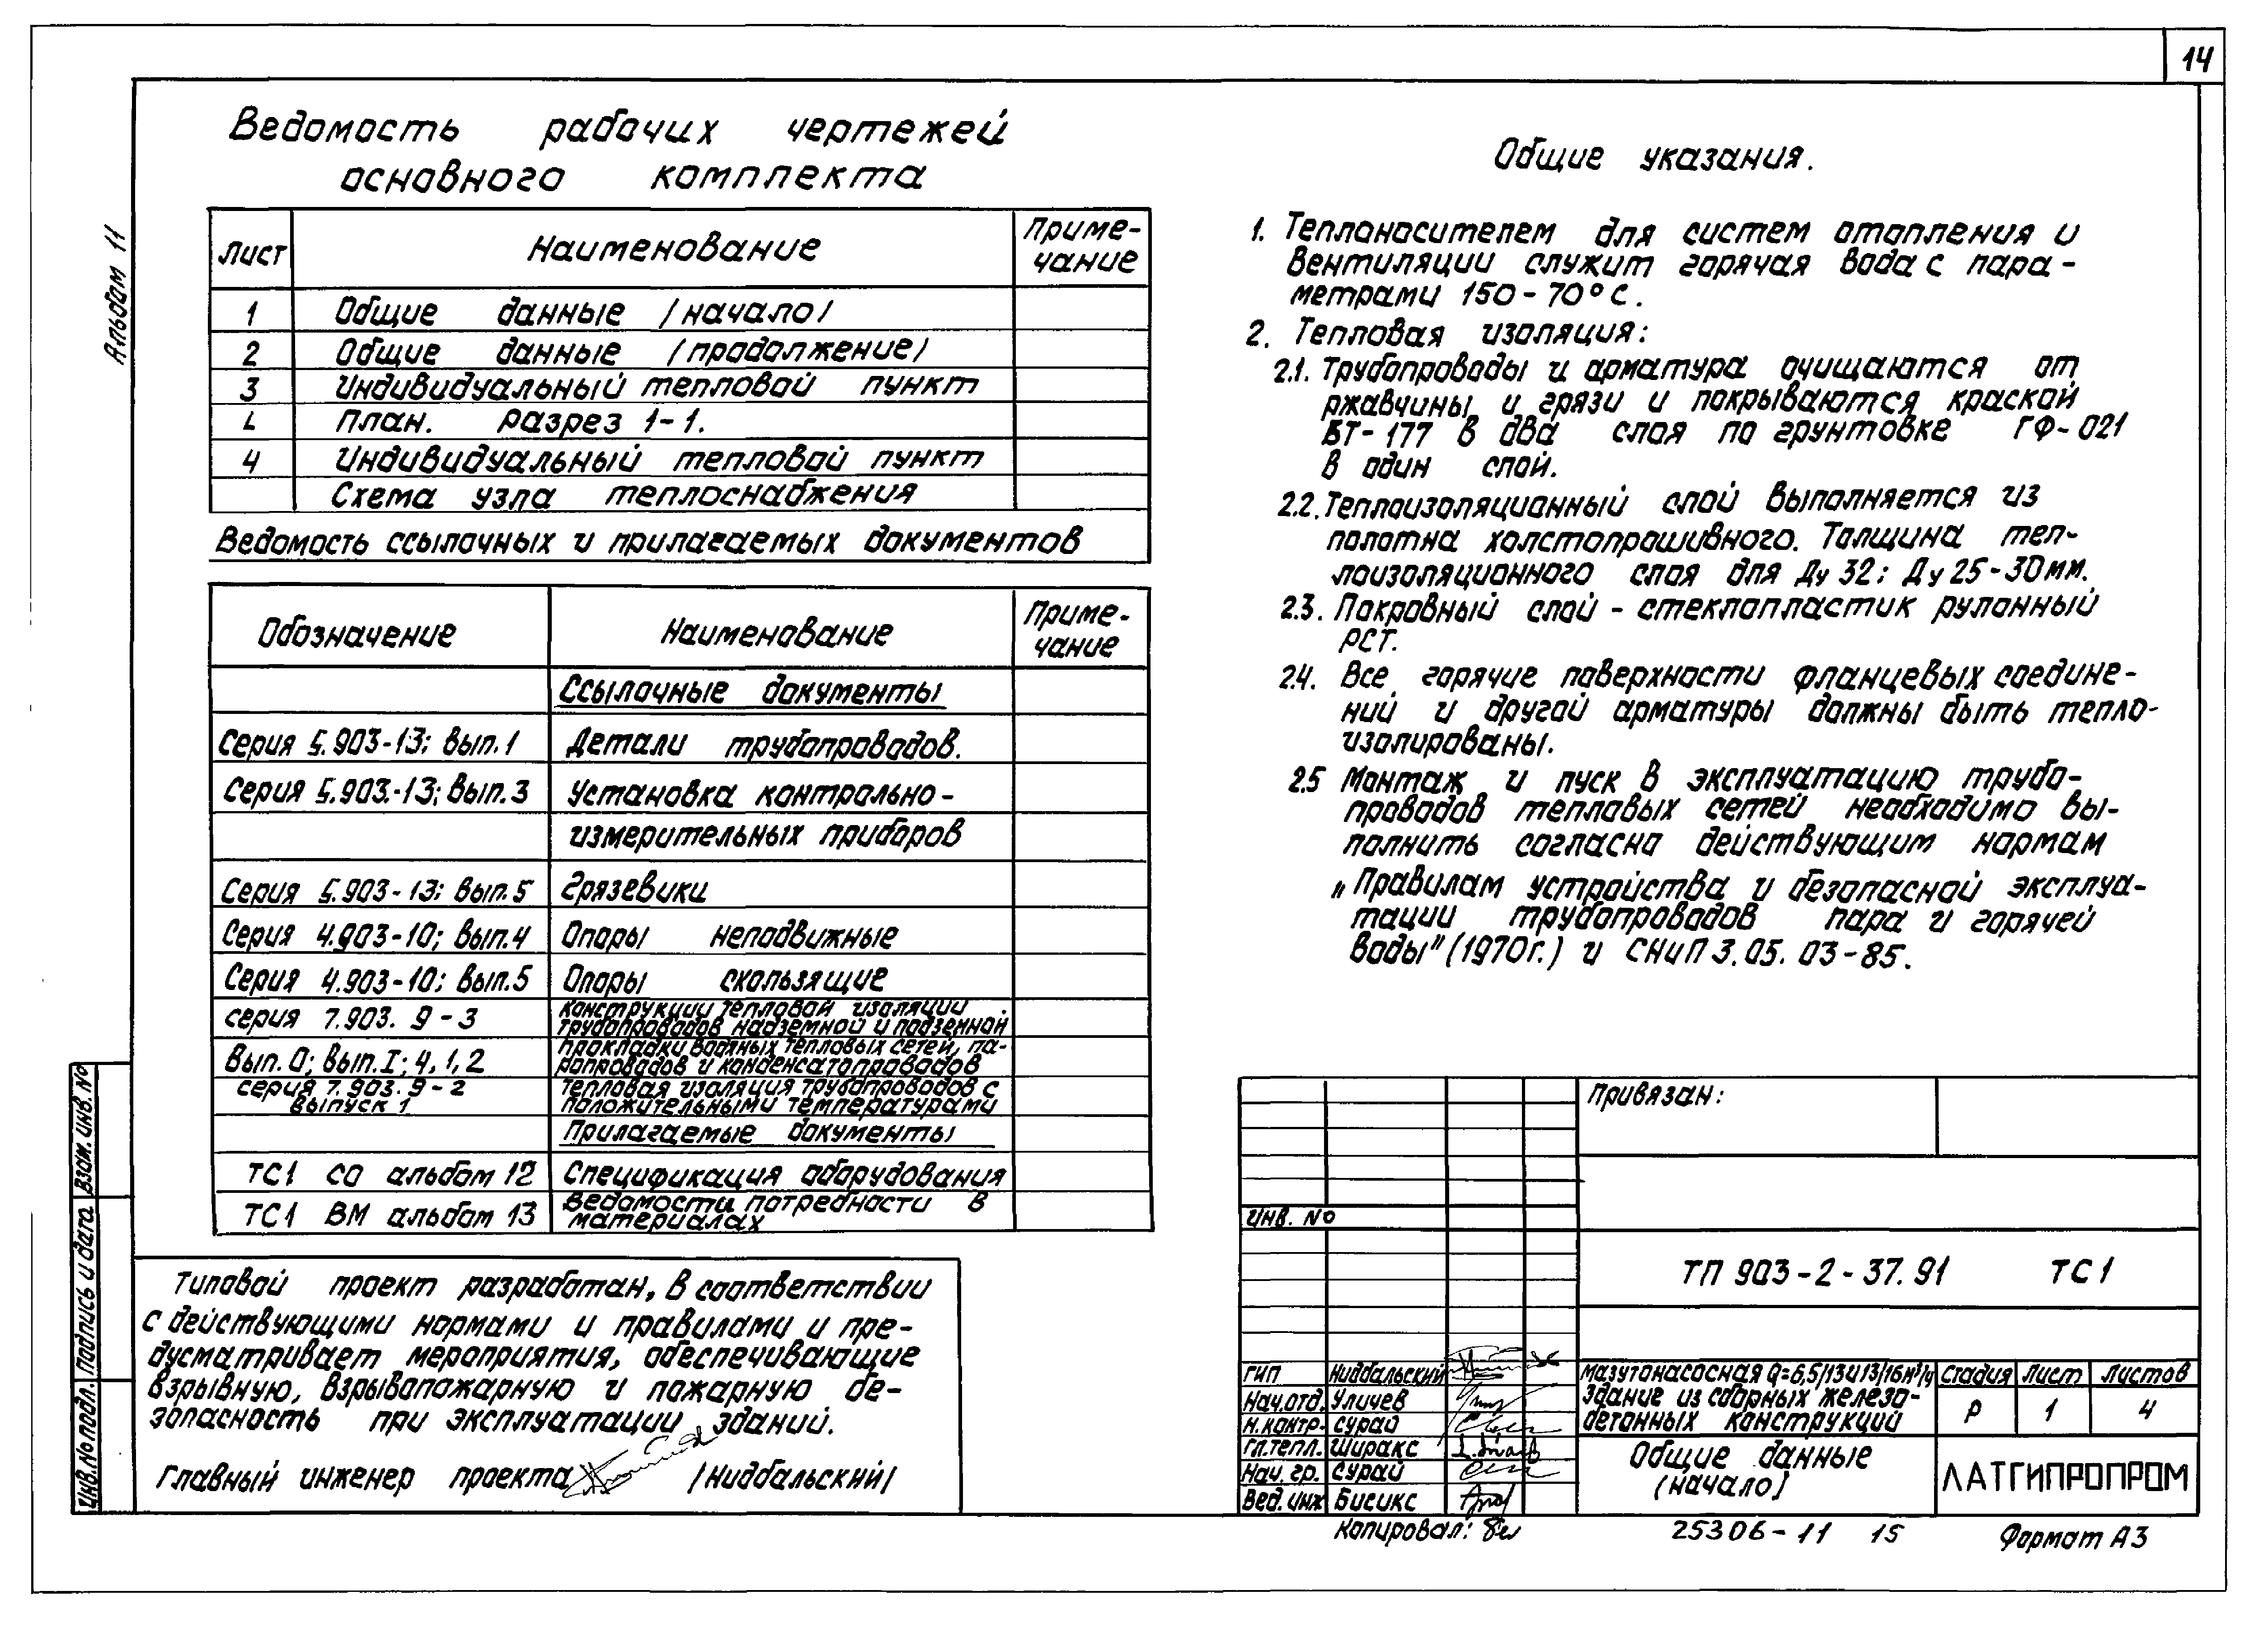 14
Альбом 11
Ведомость рабочих чертежей
основного комплекта
Лист Наименование Приме-
чание
1 Общие данные /начало/
2 Общие данные /продолжение/
3 Индивидуальный тепловой пункт
План. Разрез 1-1.
4 Индивидуальный тепловой пункт
Схема узла теплоснабжения
Ведомость ссылочных и прилагаемых документов
Обозначение Наименование Приме-
чание
Ссылочные документы
Серия 5.903-13; вып.1 Детали трубопроводов.
Серия 5.903-13; вып.3 Установка контрольно-
измерительных приборов
Серия 5.903-13; вып.5 Грязевики
Серия 4.903-10; вып.4 Опоры неподвижные
Серия 4.903-10; вып.5 Опоры скользящие
серия 7.903.9-3 конструкции тепловой изоляции
трубопроводов надземной и подземной
Вып.0; вып.I; 4,1,2 прокладки водяных тепловых сетей, па-
ропроводов и конденсатопроводов
серия 7.903.9-2 тепловая изоляция трубопроводов с
выпуск 1 положительными температурами
Прилагаемые документы
ТС1 СО альбом 12 Спецификация оборудования
ТС1 ВМ альбом 13 Ведомости потребности в
материалах
Типовой проект разработан, в соответствии
с действующими нормами и правилами и пре-
дусматривает мероприятия, обеспечивающие
взрывную, взрывопожарную и пожарную бе-
зопасность при эксплуатации зданий.
Главный инженер проекта /Нидбальский/
Общие указания.
1. Теплоносителем для систем отопления и
вентиляции служит горячая вода с пара-
метрами 150-70°С.
2. Тепловая изоляция:
2.1. Трубопроводы и арматура очищаются от
ржавчины и грязи и покрываются краской
БТ-177 в два слоя по грунтовке ГФ-021
в один слой.
2.2. Теплоизоляционный слой выполняется из
полотна холстопрошивного. Толщина теп-
лоизоляционного слоя для Ду 32; Ду 25-30мм.
2.3. Покровный слой - стеклопластик рулонный
РСТ.
2.4. Все горячие поверхности фланцевых соедине-
ний и другой арматуры должны быть тепло-
изолированы.
2.5 Монтаж и пуск в эксплуатацию трубо-
проводов тепловых сетей необходимо вы-
полнить согласно действующим нормам
„Правилам устройства и безопасной эксплуа-
тации трубопроводов пара и горячей
воды" (1970г.) и СНиП 3.05.03-85.
Привязан:
Инв. №
ТП 903-2-37.91 ТС1
ГИП Нидбальский
Нач.отд. Уличев
Н.контр. Сурай
Гл.тепл. Ширакс
Нач. гр. Сурай
Вед.инж Бисикс
Мазутонасосная Q=6,5/13 и 13/16м³/ч
здание из сборных железо-
бетонных конструкций
Стадия Лист Листов
Р 1 4
Общие данные
(начало)
ЛАТГИПРОПРОМ
Копировал:
25306-11 15
Формат А3
Инв.№подл. Подпись и дата Взам. инв. №